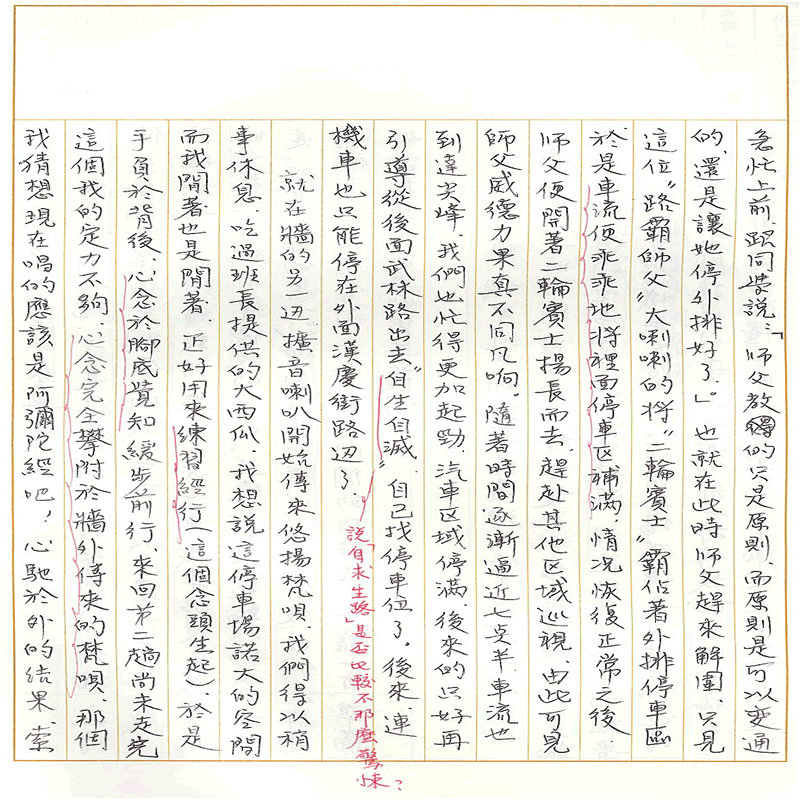 急忙上前,跟同學說:「師父教的只是原則,而原則是可以變通
的,還是讓她停外排好了。」也就在此時師父趕來解圍,只見
這位“路霸師父”大喇喇的將“二輪賓士”霸佔著外排停車區
於是車流便乖乖地將裡面停車区補滿,情況恢復正常之後
師父便開著二輪賓士揚長而去,趕赴其他区域巡視,由此可見
師父威德力果真不同凡响。隨著時間逐漸逼近七点半,車流也
到達尖峰,我們也忙得更加起勁,汽車区域停滿,後來的只好再
引導從後面武林路出去“自生自滅”自己找停車位了。後來,連
機車也只能停在外面漢慶街路边了。
說「自求生路」是否比較不那麼驚悚?
就在牆的另一边,擴音喇叭開始傳來悠揚梵唄,我們得以稍
事休息,吃過班長提供的大西瓜,我想說這停車場諾大的空間
而我閒著也是閒著,正好用來練習經行(這個念頭生起),於是
手負於背後,心念於腳底覺知緩步前行,來回第二趟尚未走完
這個我的定力不夠,心念完全攀附於牆外傳來的梵唄,那個
我猜想現在唱的應該是阿彌陀經吧!心馳於外的結果,索